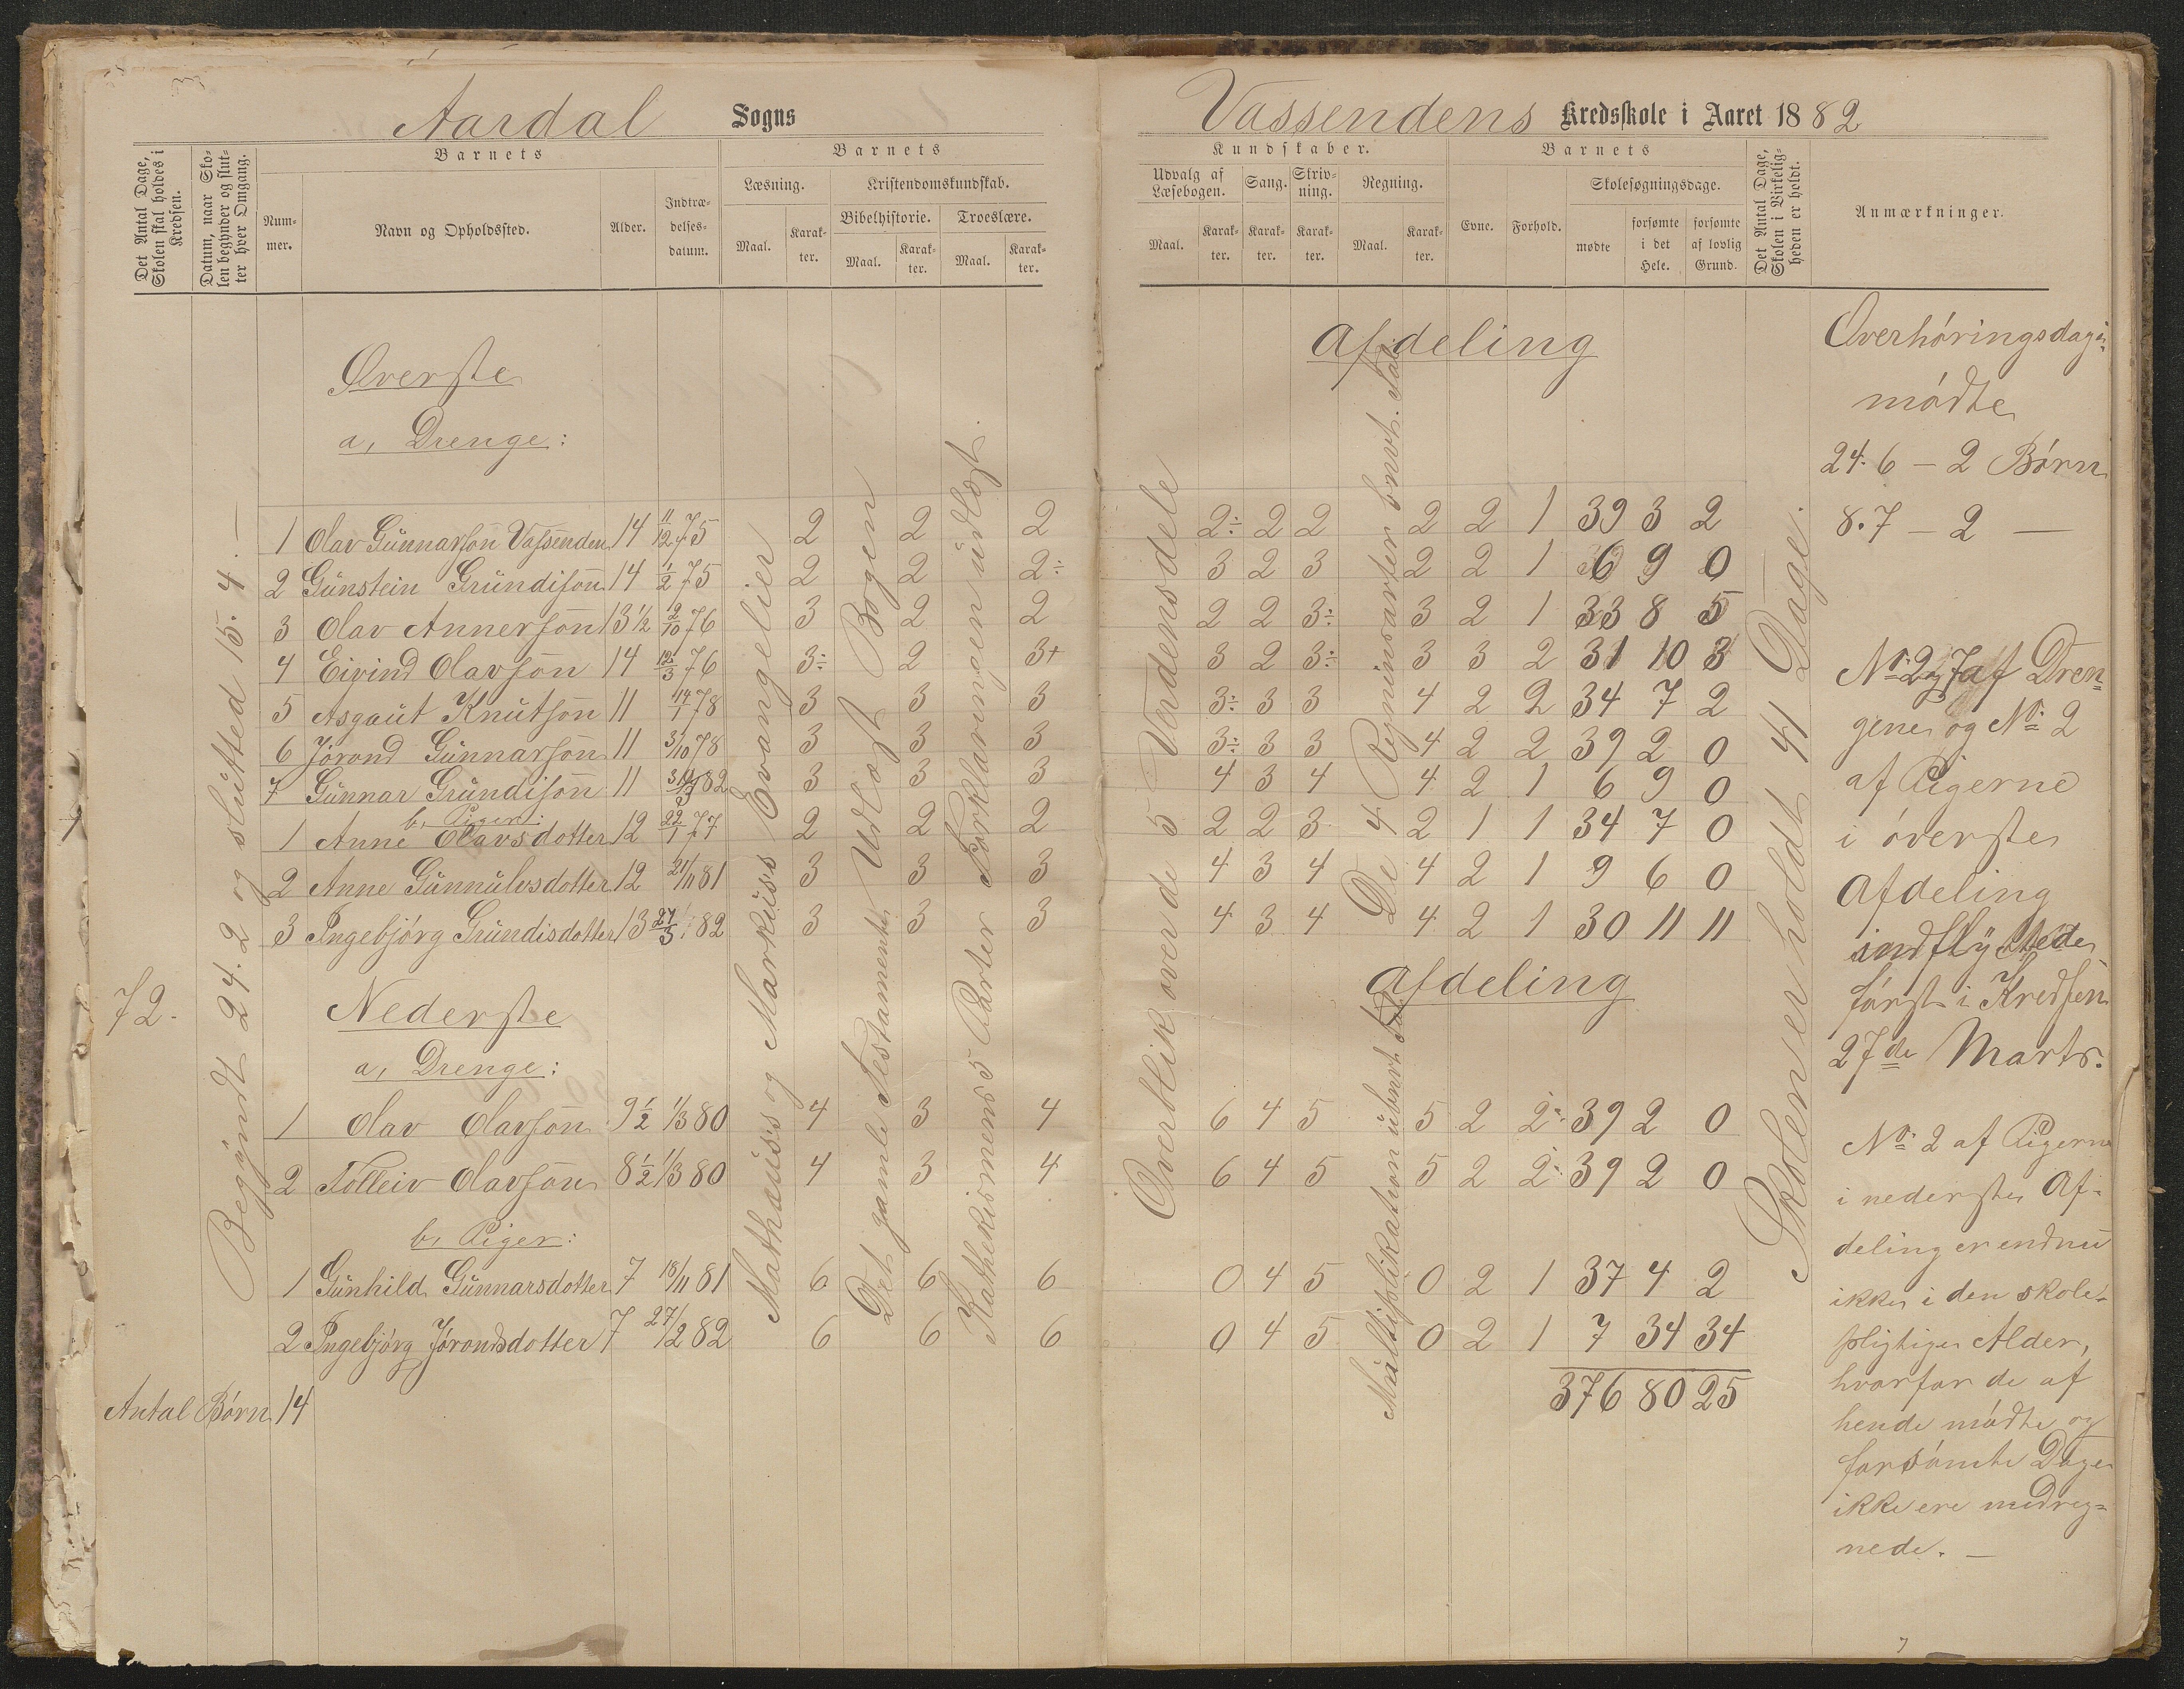 Aardal Sogns
Vassendens Kredsskole i Aaret 1882
Det Antal Dage, Skolen skal holdes i Kredsen.
Datum, naar Skolen begynder og slutter hver Omgang.
Barnets
Barnets
Kundskaber.
Barnets
Det Antal Dage, Skolen i Virkeligheden er holdt.
Anmærkninger.
Nummer.
Navn og Opholdssted.
Alder.
Indtrædelsesdatum.
Læsning.
Kristendomskundskab.
Bibelhistorie.
Troeslære.
Maal.
Karakter.
Maal.
Karakter.
Maal.
Karakter.
Udvalg af Læsebogen.
Sang.
Skrivning.
Regning.
Evne.
Forhold.
Skolesøgningsdage.
Maal.
Karakter.
Karakter.
Karakter.
Maal.
Karakter.
mødte
forsømte i det Hele.
forsømte af lovlig Grund.
72.
Begyndt 24.2 og slutted 15.4.—
Mathæuss og Markuss Evangelier
Det gamle Testamente Udlagt Bogen
Kathekismens 5 Parter Forklaringen undlagt.
Overblik over de 5 Verdensdele
De 4 Regningsarter
Multiplikation
Skolen er holdt 41 Dage.
Øverste Afdeling
a, Drenge:
1 Olav Gunnarson Vassenden 14 11/12 75 2 2 2 2÷ 2 2 2 2 1 39 3 2
2 Gunstein Grundison 14 1/2 75 2 2 2÷ 3 2 3 2 2 1 6 9 0
3 Olav Annerson 13½ 2/10 76 3 2 2 2 2 3÷ 3 2 1 33 8 5
4 Eivind Olavson 14 12/3 76 3÷ 2 3+ 3 2 3÷ 3 3 2 31 10 3
5 Asgaut Knutson 11 14/1 78 3 3 3 3÷ 3 3 4 2 2 34 7 2
6 Jørond Gunnarson 11 3/10 78 3 3 3 3÷ 3 3 4 2 2 39 2 0
7 Gunnar Grundison 11 82 3 3 3 4 3 4 4 2 1 6 9 0
b, Piger:
1 Anne Olavsdotter 12 22/1 77 2 2 2 2 2 3 2 1 1 34 7 0
2 Anne Gunnulvsdotter 12 21/11 81 3 3 3 4 3 4 4 2 1 9 6 0
3 Ingebjørg Grundisdotter 13 27/3 82 3 3 3 4 3 4 4 2 1 30 11 11
Nederste Afdeling
a, Drenge:
1 Olav Olavson 9½ 1/3 80 4 3 4 6 4 5 5 2 2÷ 39 2 0
2 Tolleiv Olavson 8½ 1/3 80 4 3 4 6 4 5 5 2 2÷ 39 2 0
b, Piger:
1 Gunhild Gunnarsdotter 7 18/11 81 6 6 6 0 4 5 0 2 1 37 4 2
2 Ingebjørg Jørondsdotter 7 27/2 82 6 6 6 0 4 5 0 2 1 7 34 34
376 80 25
Antal Børn 14
Overhøringsdagen
mødte
24.6 — 2 Børn
8.7 — 2 —
No. 2 og 7 af Dren=
gene og No. 2
af Pigerne
i øverste
Afdeling
indflyttede
først i Kredsen
27de Marts.
No. 2 af Pigerne
i nederste Af-
deling er endnu
ikke i den skole-
pligtige Alder,
hvorfor de af
hende mødte og
forsømte Dage
ikke ere medreg=
nede. —